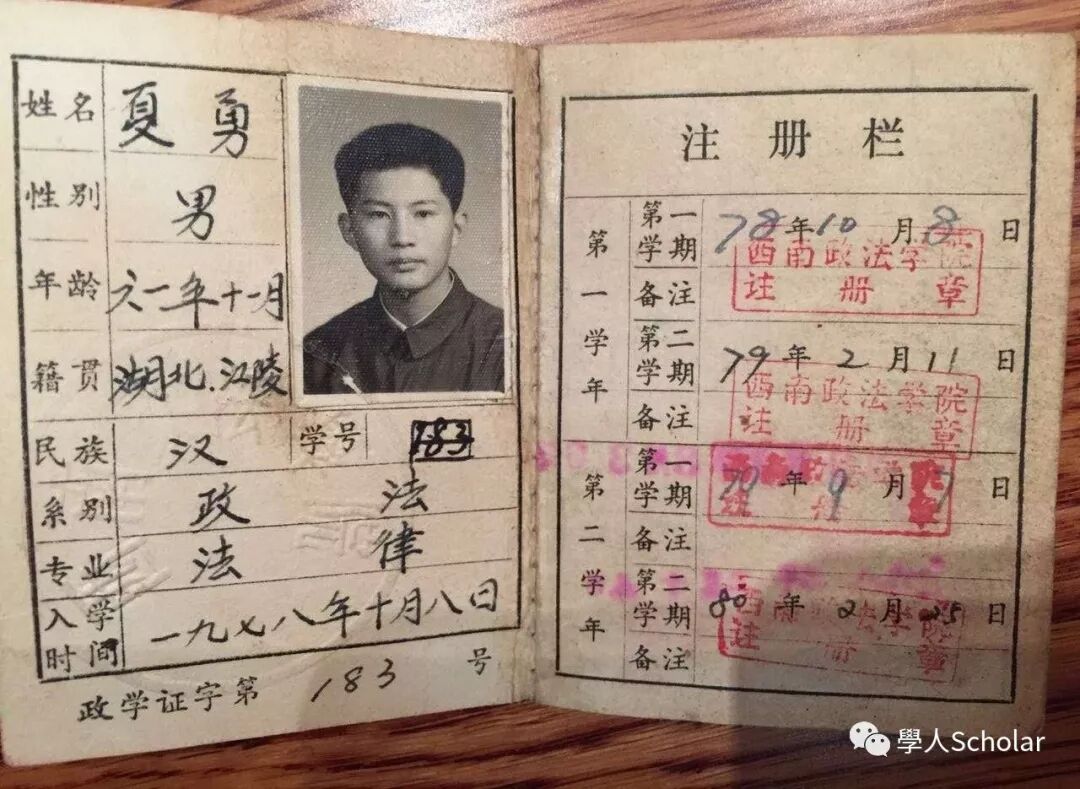 姓名 夏勇
性别 男
年龄 六一年十一月
籍贯 湖北.江陵
民族 汉 学号 183
系别 政法
专业 法律
入学时间 一九七八年十月八日
政学证字第 183 号
注册栏
第一学年
第一学期 78年10月8日
西南政法学院
註册章
备注
第二学期 79年2月11日
西南政法学院
註册章
备注
第二学年
第一学期 79年9月7日
备注
第二学期 80年2月25日
备注
學人Scholar